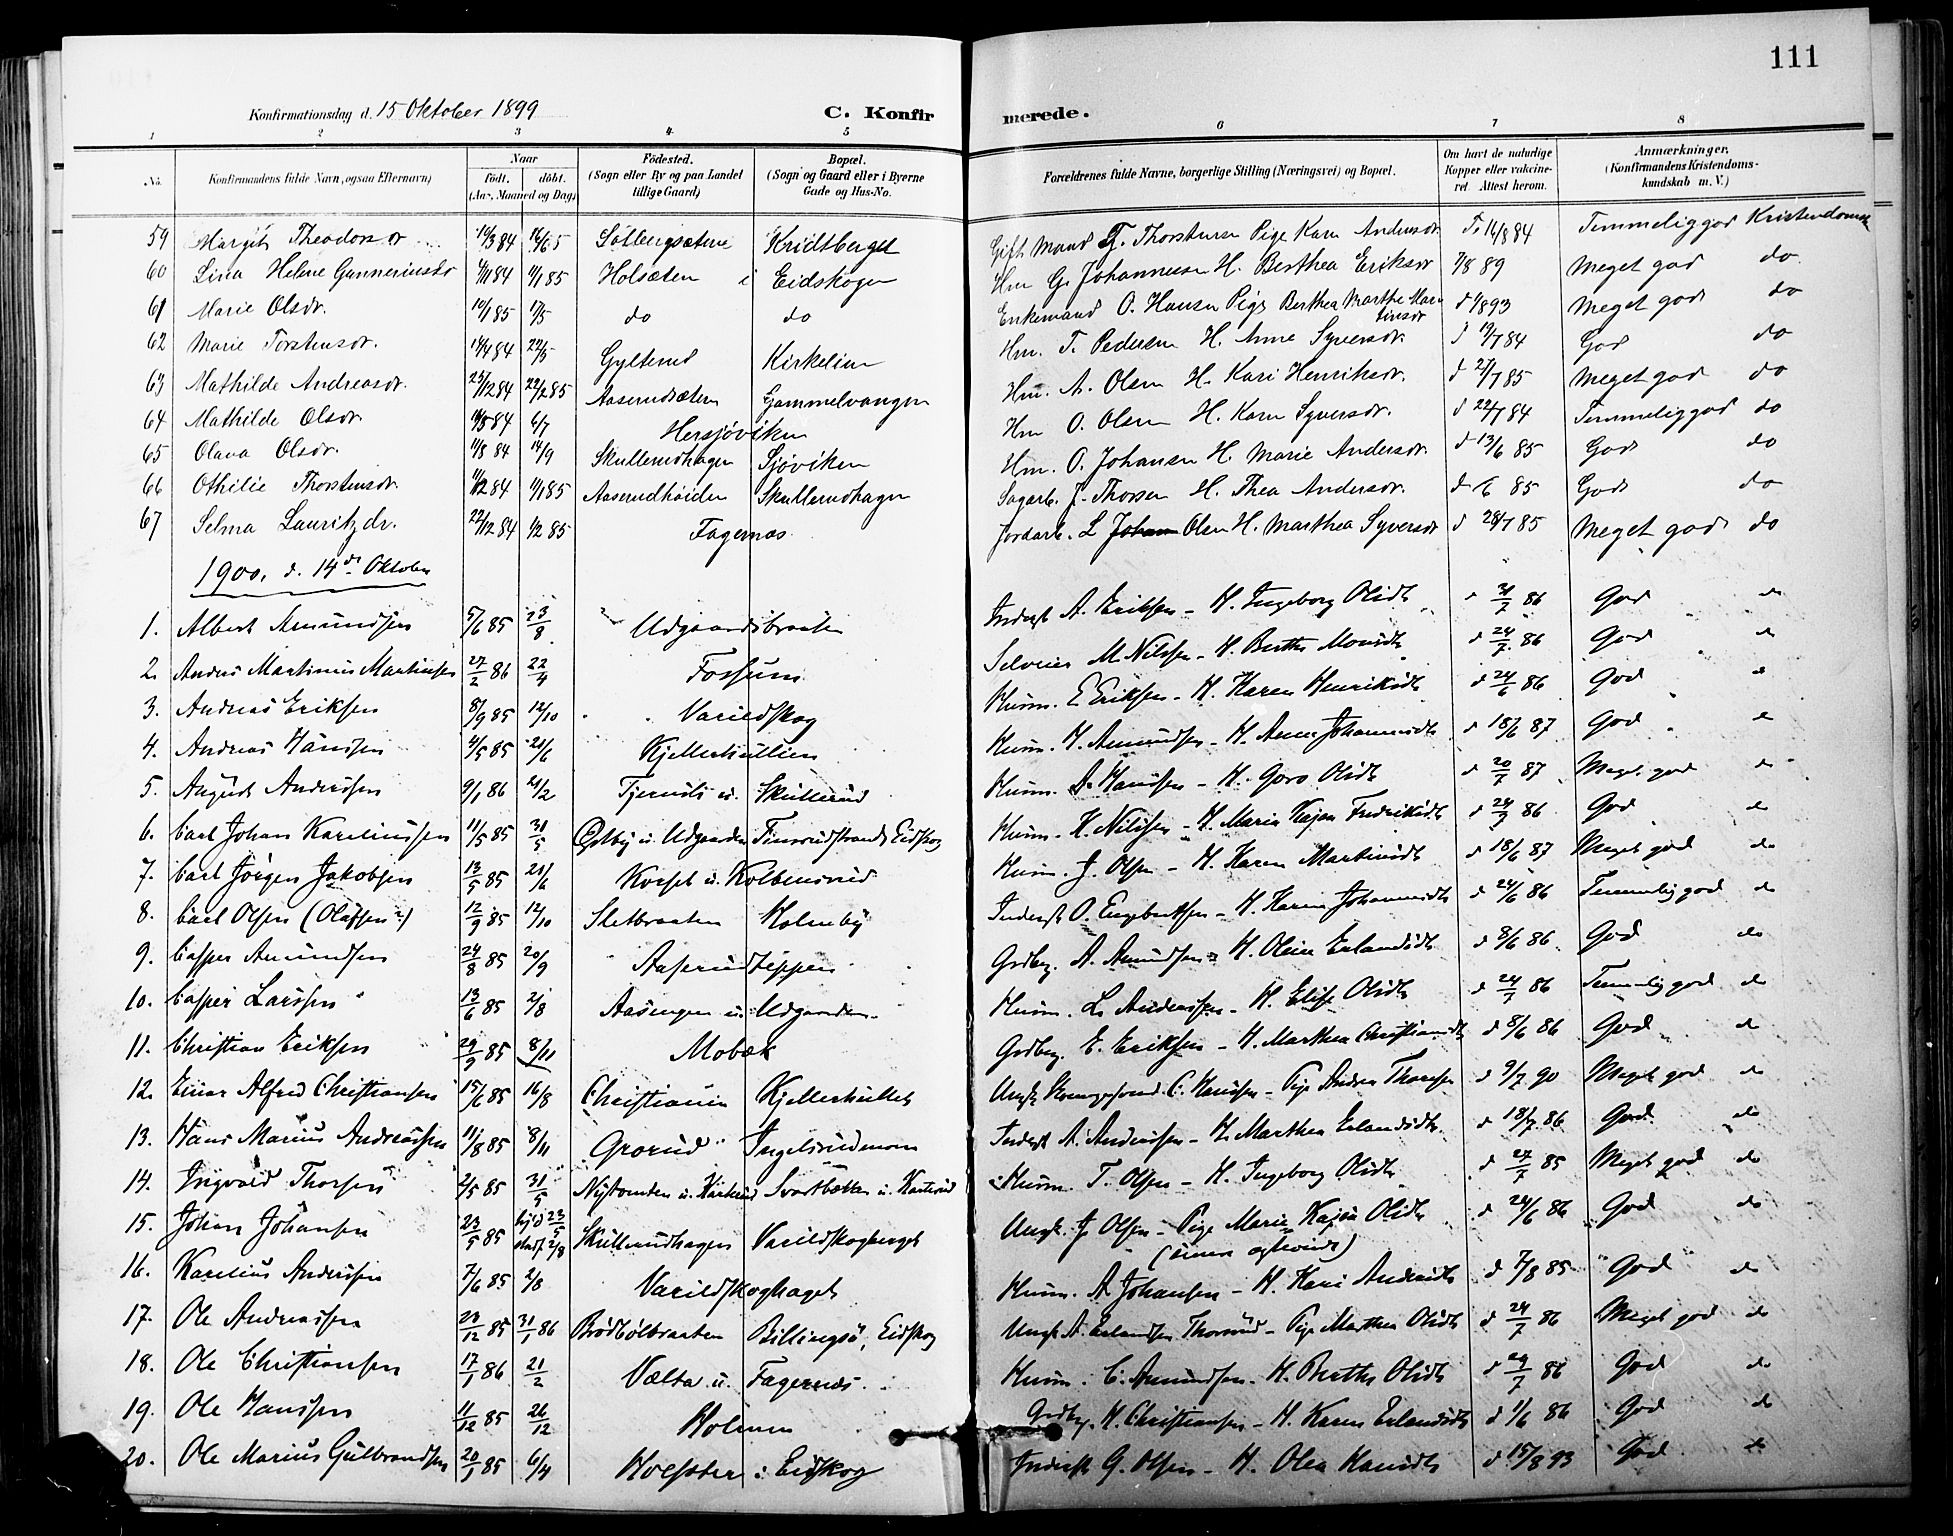 111
Konfirmationsdag d. 15 Oktober 1899 C. Konfirmerede.
1 2 3 4 5 6 7 8
No. Konfirmandens fulde Navn, ogsaa Efternavn) Naar Födt. döbt. (Aar, Maaned og Dag) Födested. (Sogn eller By og paa Landet tillige Gaard) Bopæl. (Sogn og Gaard eller i Byerne Gade og Hus-No. Forældrenes fulde Navne, borgerlige Stilling (Næringsvei) og Bopæl. Om havt de naturlige Kopper eller vakcineret. Attest herom. Anmærkninger. (Konfirmandens Kristendomskundskab m. V.)
59 Margit Theodorsdr 84 Solbergsæteren Kridtberget Gift Mand T. Thorstensen Pige Karen Andersdr 84 Temmelig god Kristendomsk
60 Lina Helene Gunneriusdr 84 11/1 85 Holsæten i Eidskogen Hm G. Johannesen H. Berthea Eriksdr 7/8 89 Meget god do.
61 Marie Olsdr. 10/1 85 17/5 do do Enkemand O. Hansen Pige Berthea Marthe Martinsdr d 93 Meget god do
62 Marie Torstensdr. 14/4 84 22/5 Gylterud Kirkelien Hm. T. Pedersen H. Anne Syversdr. d 19/7 84 God do
63 Mathilde Andreasdr. 23/12 84 22/2 85 Aaserudsæteren Gammelvangen Hm. A. Olsen H. Kari Henriksdr. d 27/7 85 Meget god do
64 Mathilde Olsdr. 84 6/7 Hersjöviken Hm O. Olsen H. Karen Syversdr. d 22/7 84 Temmelig god do
65 Olava Olsdr. 11/8 84 14/9 Skullerudhagen Sjöviken Hm. O. Johansen H. Marie Andersdr. d 13/6 85 God do
66 Othilie Thorstensdr. 84 11/1 85 Aaserudhöiden Skullerudhagen Sagarb. J. Thorsen H. Thea Andersdr. d 85 God do
67 Selma Lauritzdr. 22/12 84 1/2 85 Fagernæs Jordarb. L Johan Olsen H. Marthea Syversdr d 28/7 85 Meget god do
1900, d. 14de Oktober
1. Albert Amundsen 5/6 85 23/8 Udgaardsbraaten Inderst A. Eriksen – H. Ingeborg Olsdt d 86 God do
2. Anders Martinius Martinsen 27/2 86 22/4 Fossum Selveier M. Nilsen – H. Berthe d 24/7 86 God do
3. Andreas Eriksen 8/9 85 12/10 Varildskog Husm. E Eriksen – H. Karen Henriksdt d 24/6 86 God do
4. Andreas Hansen 4/5 85 21/6 Kjellerhullien Husm. H. Amundsen – H. Anne Johannesdt d 18/6 87 God do
5. August Andersen 9/1 86 21/2 Tjernsli u. Skullerud Husm. A. Hansen – H. Goro Olsdt d 20/7 87 Meget god do
6. Carl Johan Kareliussen 11/5 85 31/5 Østby u. Udgaarden Finsrudstrand, Eidskog Husm. K. Nilsen – H. Maria Kajsa Fredriksdt d 24/7 86 God do
7. Carl Jörgen Jakobsen 13/5 85 21/6 Korset u. Kolbensrud Husm. J. Olsen – H. Karen Martinsdt d 18/6 87 Meget god do
8. Carl Olsen (Olafsen?) 12/9 85 12/10 Sletbraaten Holmby Inderst O. Engebretsen – H. Karen Johannesdt d 24/6 86 Temmelig god do
9. Casper Amundsen 24/8 85 20/9 Aaserudteppen Grdbrg. A. Amundsen – H. Oline Erlandsdt d 8/6 86 God do
10. Casper Larssen 13/6 85 2/8 Aasengen u. Udgaarden Husm. L. Andersen – H. Elise Olsdt d 24/7 86 Temmelig god do
11. Christian Eriksen 29/9 85 8/11 Mobæk Grdbrg. E. Eriksen – H. Marthea Christiansdt d 8/6 86 God do
12. Einar Alfred Christiansen 15/6 85 16/8 Christiania Kjellerhullet Ungk. C. Hansen – Pige Andrea Thoresen d 9/7 90 Meget god do
13. Hans Marius Andreassen 11/8 85 8/11 Grorud Ingelsrudmoen Inderst A. Andersen – H. Marthea Erlandsdt d 18/7 86 God do
14. Ingvald Thorsen 2/5 85 31/5 Svartbækken u. Husm. T. Olsen – H. Ingeborg Olsdt d 27/7 85 Meget god do
15. Johan Johansen 23/5 85 hjd 23/5 stadf. 2/8 Skullerudhagen Varildskogberget Ungk. J. Olsen – Pige Marie Kajsa Olsdt d 24/6 86 God do
16. Karelius Andersen 7/6 85 2/8 Varildskoghaget Husm. A. Johansen – H. Kari Andersdt d 7/8 85 God do
17. Ole Andreassen 12 85 31/1 86 Brödbölbraaten Billingsö, Eidskog Ungk. A. Erlandsen Thorsrud – Pige Marthea Olsdt d 24/7 86 Meget god do
18. Ole Christiansen 17/1 86 21/2 Vælta u. Fagernæs Husm. C. Amundsen – H. Berthe Olsdt d 24/7 86 God do
19. Ole Hansen 11/12 85 26/12 Holmen Grdbrg. H. Christiansen – H. Karen Erlandsdt d 1/6 86 God do
20. Ole Marius Gulbrandsen 20/1 85 6/4 i Eidskog Inderst G. Olsen – H. Olea Hansdt d 15/8 93 God do